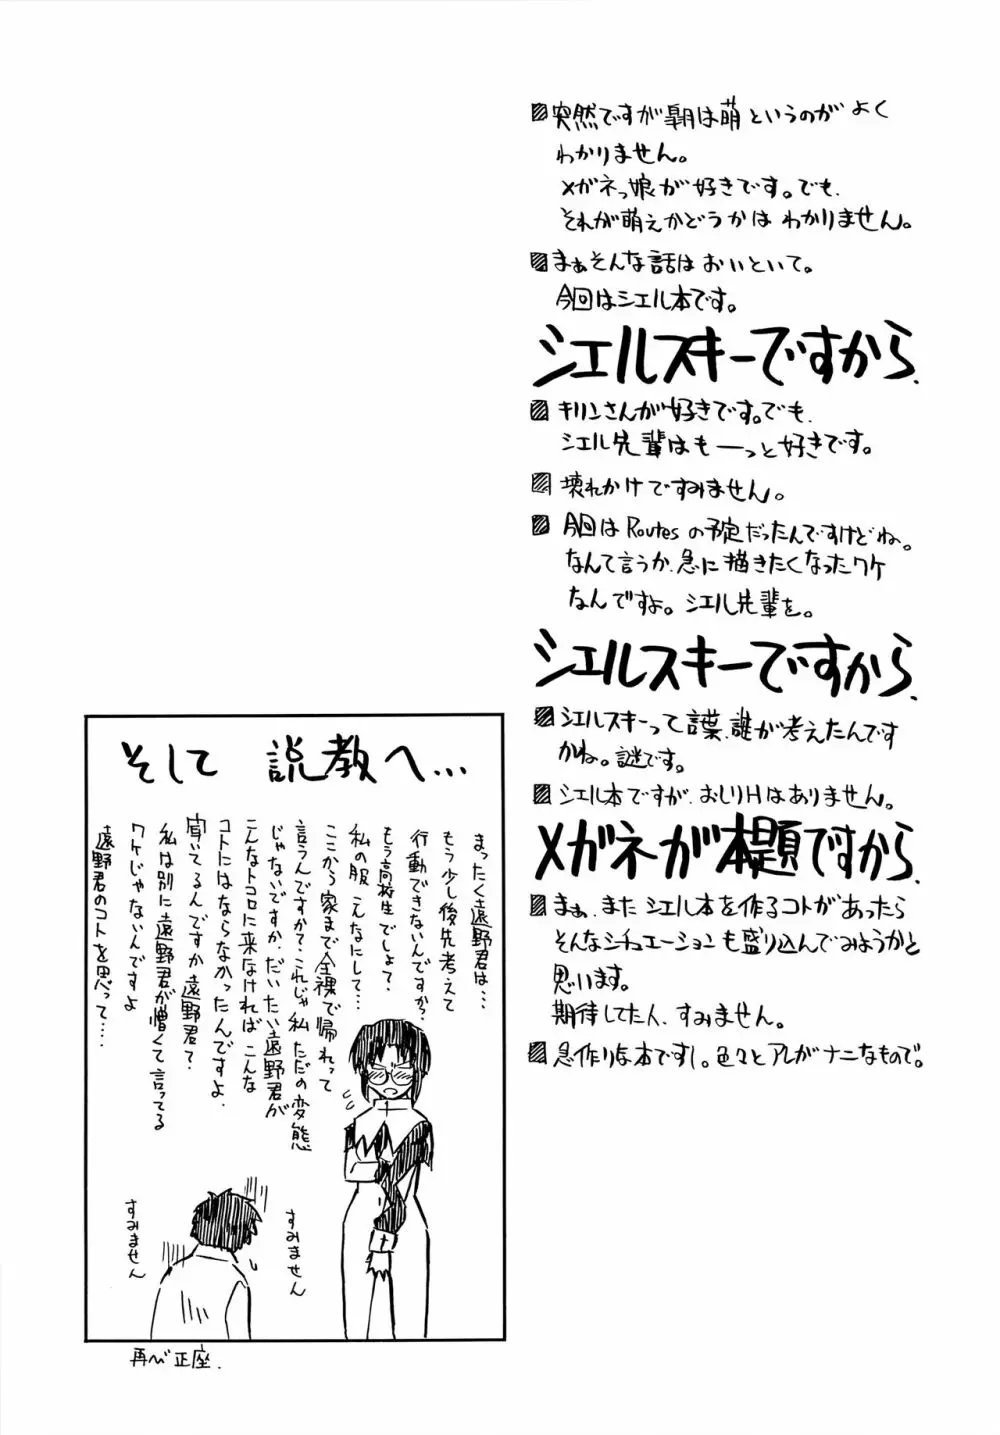 突然ですが朝は萌というのがよく
わかりません。
メガネっ娘が好きです。でも、
それが萌えかどうかはわかりません。
まぁそんな話はおいといて。
今回はシエル本です。
シエルスキーですから。
キリンさんが好きです。でも、
シエル先輩はもーっと好きです。
壊れかけですみません。
今回はRoutesの予定だったんですけどね。
なんて言うか、急に描きたくなったワケ
なんですよ。シエル先輩を。
シエルスキーですから。
シエルスキーって言葉、誰が考えたんです
かね。謎です。
シエル本ですが、おしりHはありません。
メガネが本題ですから
まぁ、またシエル本を作るコトがあったら
そんなシチュエーションも盛り込んでみようかと
思います。
期待してた人、すみません。
急作りな本ですし。色々とアレがナニなもので。
そして 説教へ…
まったく遠野君は…
もう少し後先考えて
行動できないんですか？
もう高校生でしょ？
私の服 こんなにして…
ここから家まで全裸で帰れって
言うんですか？これじゃ私ただの変態
じゃないですか。だいたい遠野君が
こんなトコロに来なければこんな
コトにはならなかったんですよ。
聞いてるんですか遠野君？
私は別に遠野君が憎くて言ってる
ワケじゃないんですよ
遠野君のコトを思って…
すみません
すみません
再び正座.